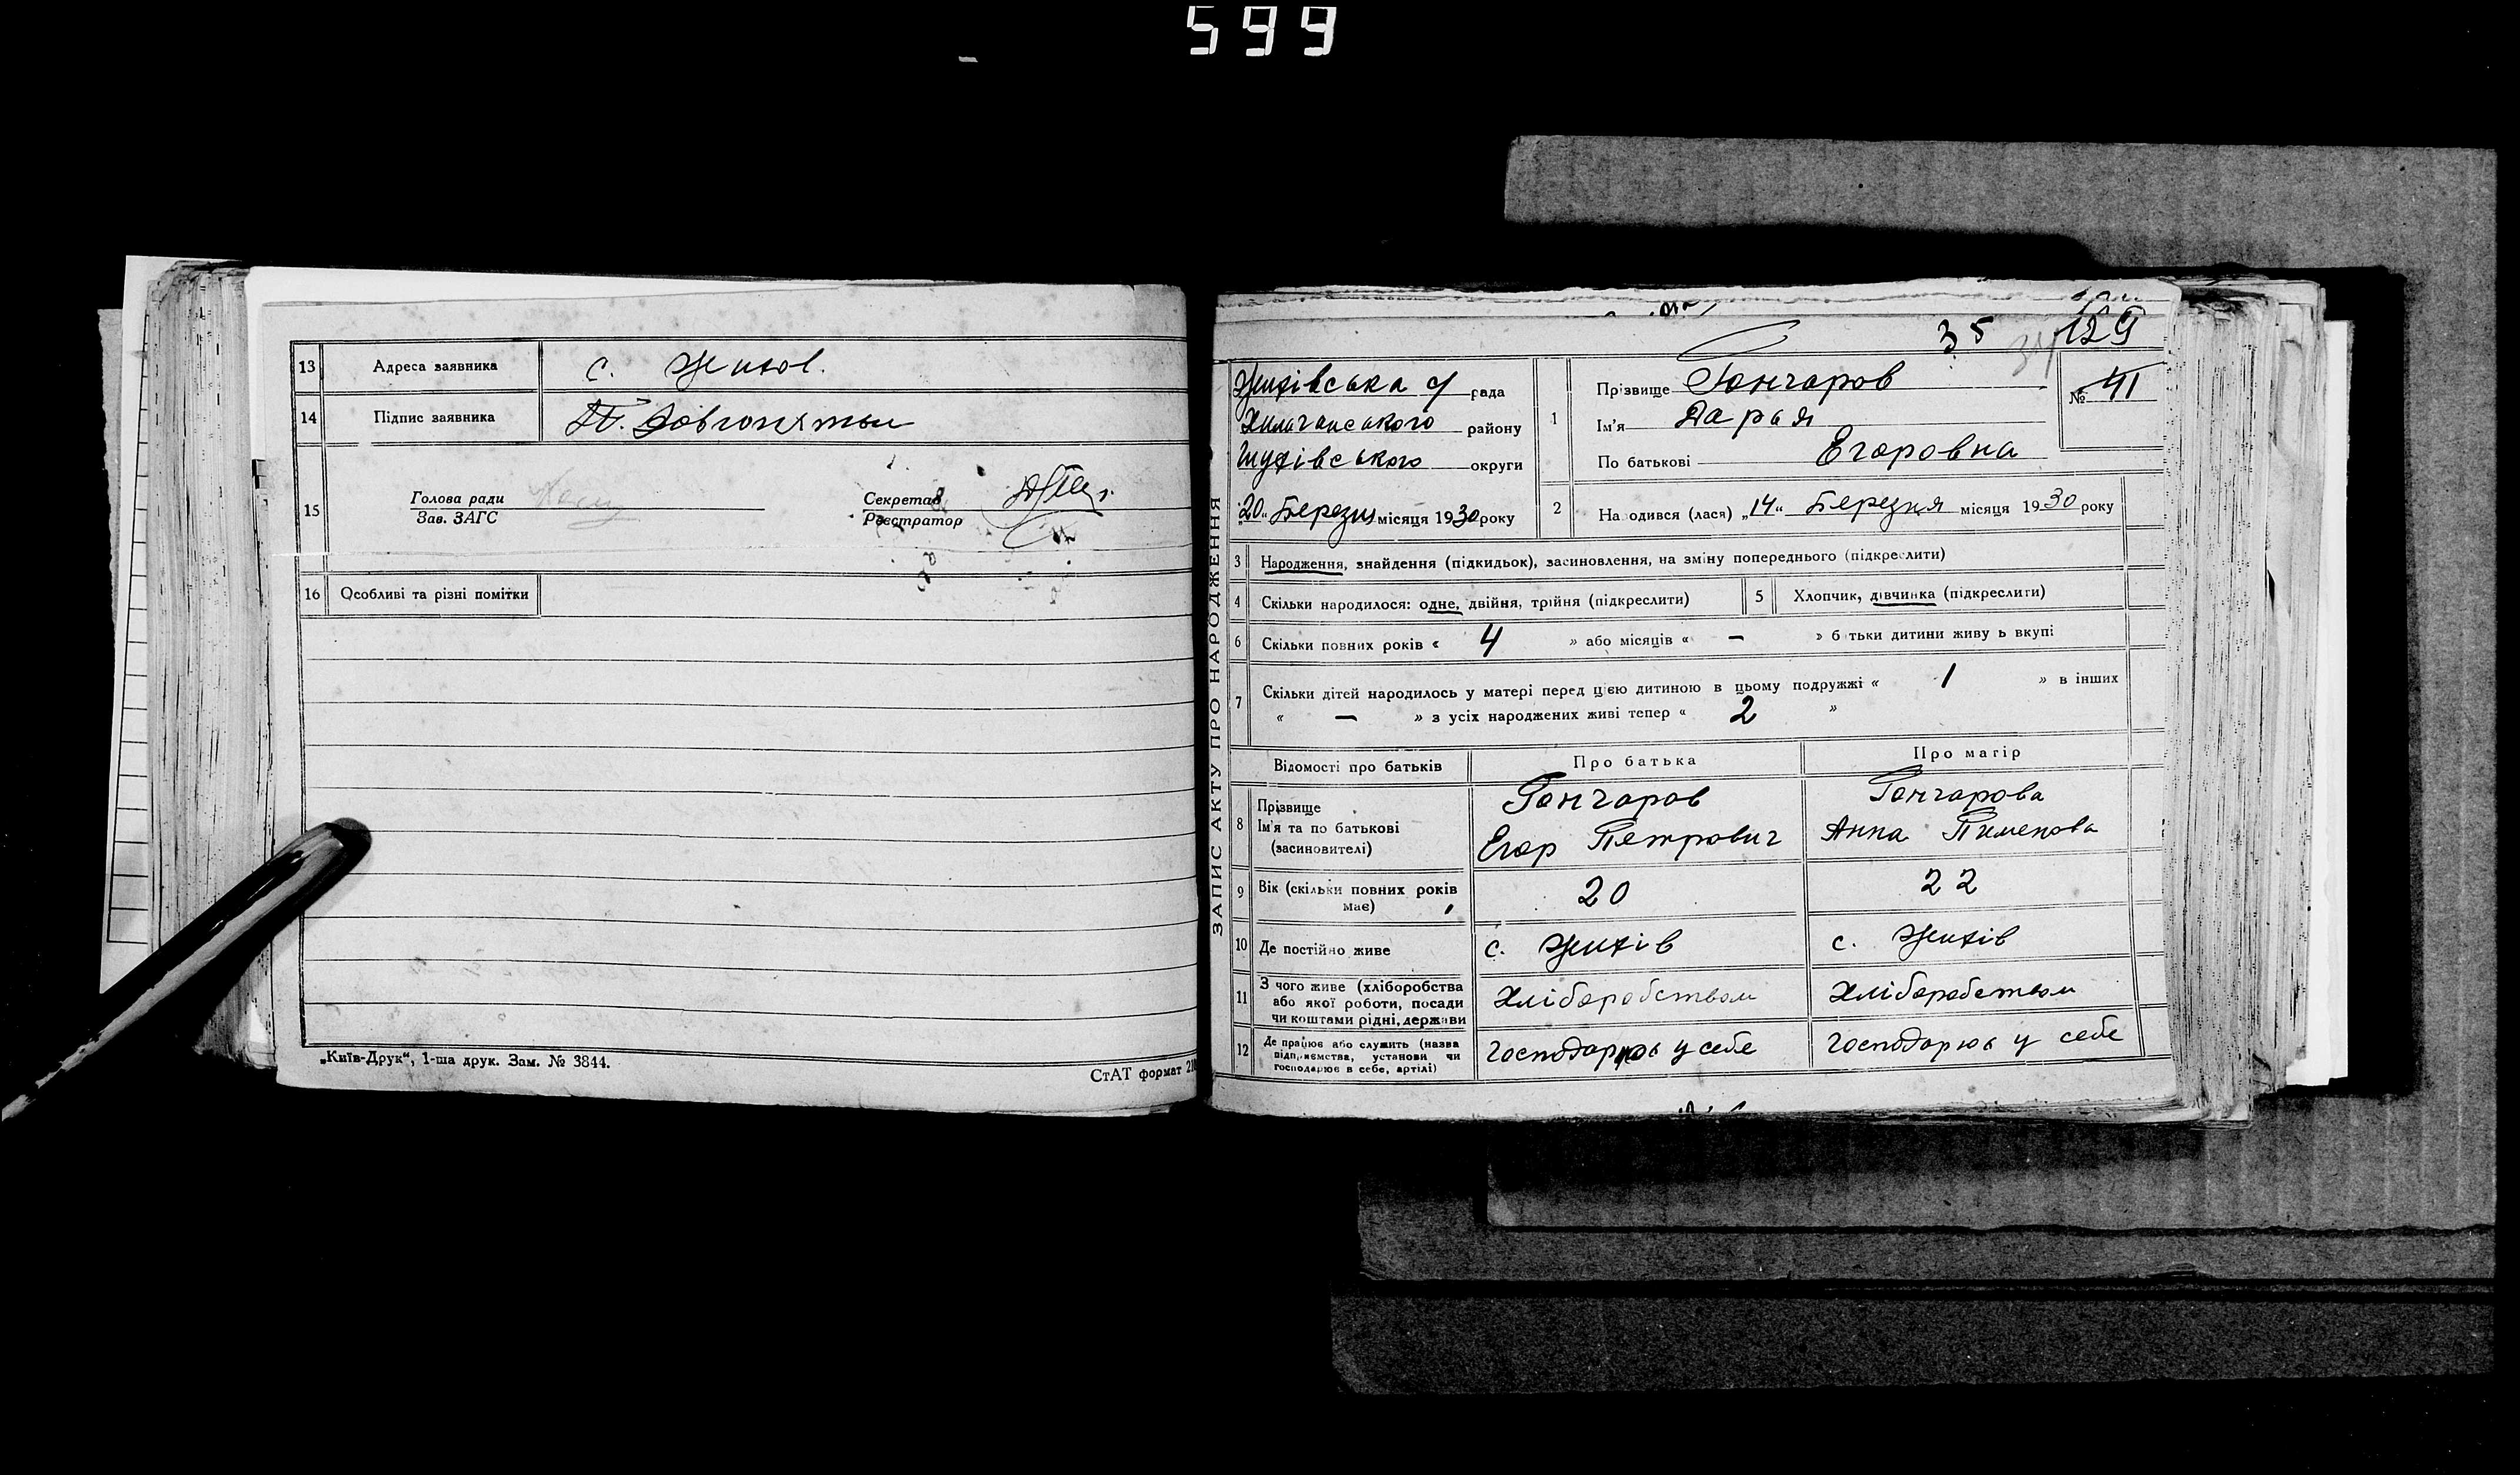 599
13 Адреса заявника с. Жихов.
14 Підпис заявника П.
15 Голова ради
Зав. ЗАГС
Секретар
Реєстратор
16 Особливі та різні помітки
„Київ-Друк“, 1-ша друк. Зам. № 3844.
СтАТ формат
ЗАПИС АКТУ ПРО НАРОДЖЕННЯ
35 129
Жихівська с/рада
Хильчанського району
Глухівського округи
„20“ Березня місяця 1930 року
1 Прізвище Гончаров
Ім'я Дарья
По батькові Егоровна
№ 41
2 Народився (лася) „14“ Березня місяця 1930 року
3 Народження, знайдення (підкидьок), засиновлення, на зміну попереднього (підкреслити)
4 Скільки народилося: одне, двійня, трійня (підкреслити)
5 Хлопчик, дівчинка (підкреслити)
6 Скільки повних років « 4 » або місяців « – » батьки дитини живуть вкупі
7 Скільки дітей народилось у матері перед цією дитиною в цьому подружжі « 1 » в інших
« – » з усіх народжених живі тепер « 2 »
Відомості про батьків
Про батька
Про матір
8 Прізвище
Ім'я та по батькові
(засиновителі)
Гончаров
Егор Петрович
Гончарова
Анна Пименова
9 Вік (скільки повних років
має)
20
22
10 Де постійно живе
с. Жихів
с. Жихів
11 З чого живе (хліборобства
або якої роботи, посади
чи коштами рідні, держави
Хліборобством
Хліборобством
12 Де працює або служить (назва
підприємства, установи чи
господарює в себе, артілі)
Господарює у себе
Господарює у себе